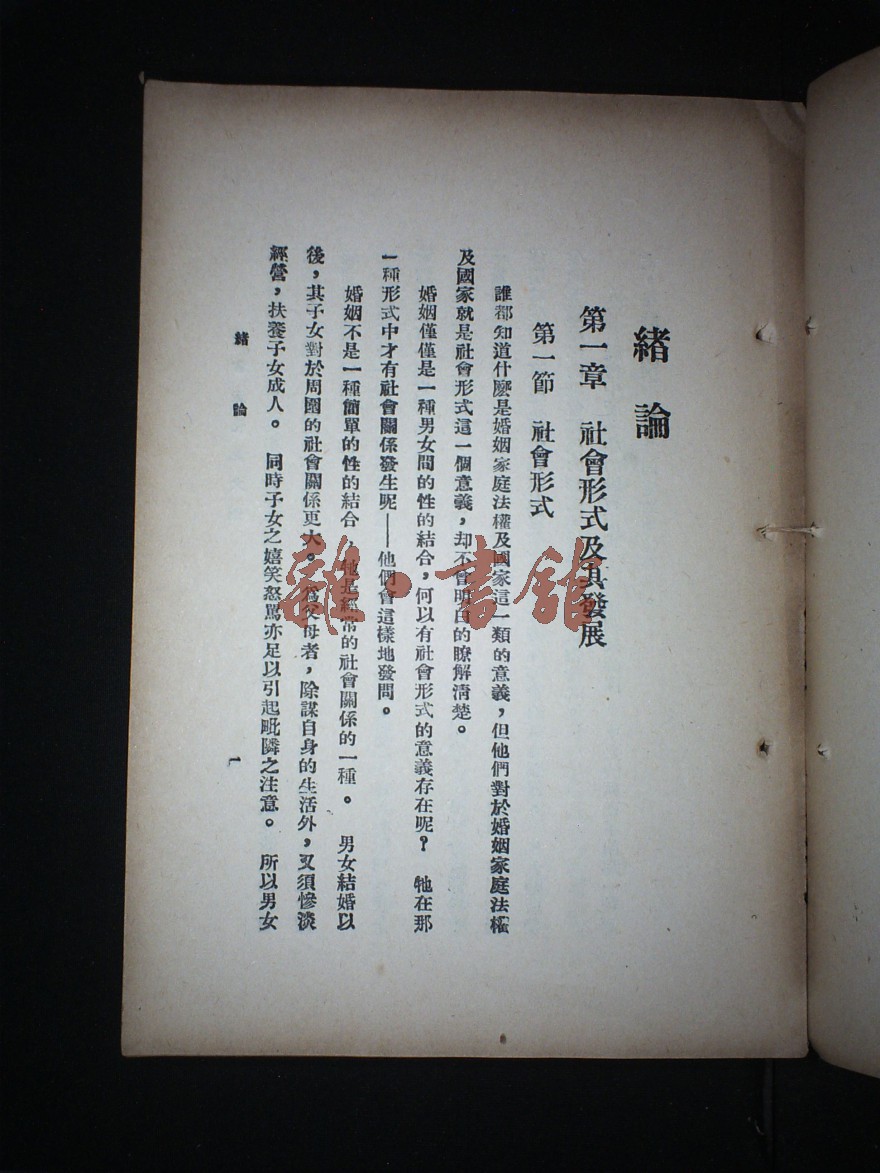 緒論
第一章 社會形式及其發展
第一節 社會形式
誰都知道什麽是婚姻家庭法權及國家這一類的意義，但他們對於婚姻家庭法權
及國家就是社會形式這一個意義，却不會明白的瞭解清楚。
婚姻僅僅是一種男女間的性的結合，何以有社會形式的意義存在呢？ 牠在那
一種形式中才有社會關係發生呢——他們會這樣地發問。
婚姻不是一種簡單的性的結合，牠是經常的社會關係的一種。 男女結婚以
後，其子女對於周圍的社會關係更大。爲父母者，除謀自身的生活外，又須慘淡
經營，扶養子女成人。 同時子女之嬉笑怒罵亦足以引起毗隣之注意。 所以男女
緒論
一
雜·書館